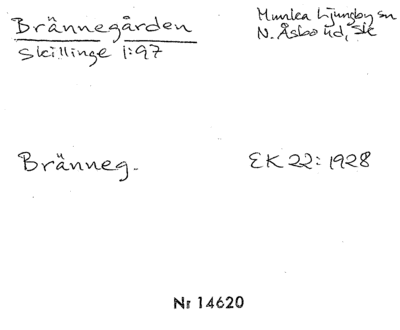 Brännegården
Skillinge 1:97
Munka Ljungby sn
N. Åsbo hd, Sk
Bränneg. EK 22: 1928
Nr 14620